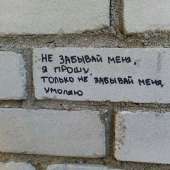 НЕ ЗАБЫВАЙ МЕНЯ,
Я ПРОШУ.
ТОЛЬКО НЕ ЗАБЫВАЙ МЕНЯ,
УМОЛЯЮ